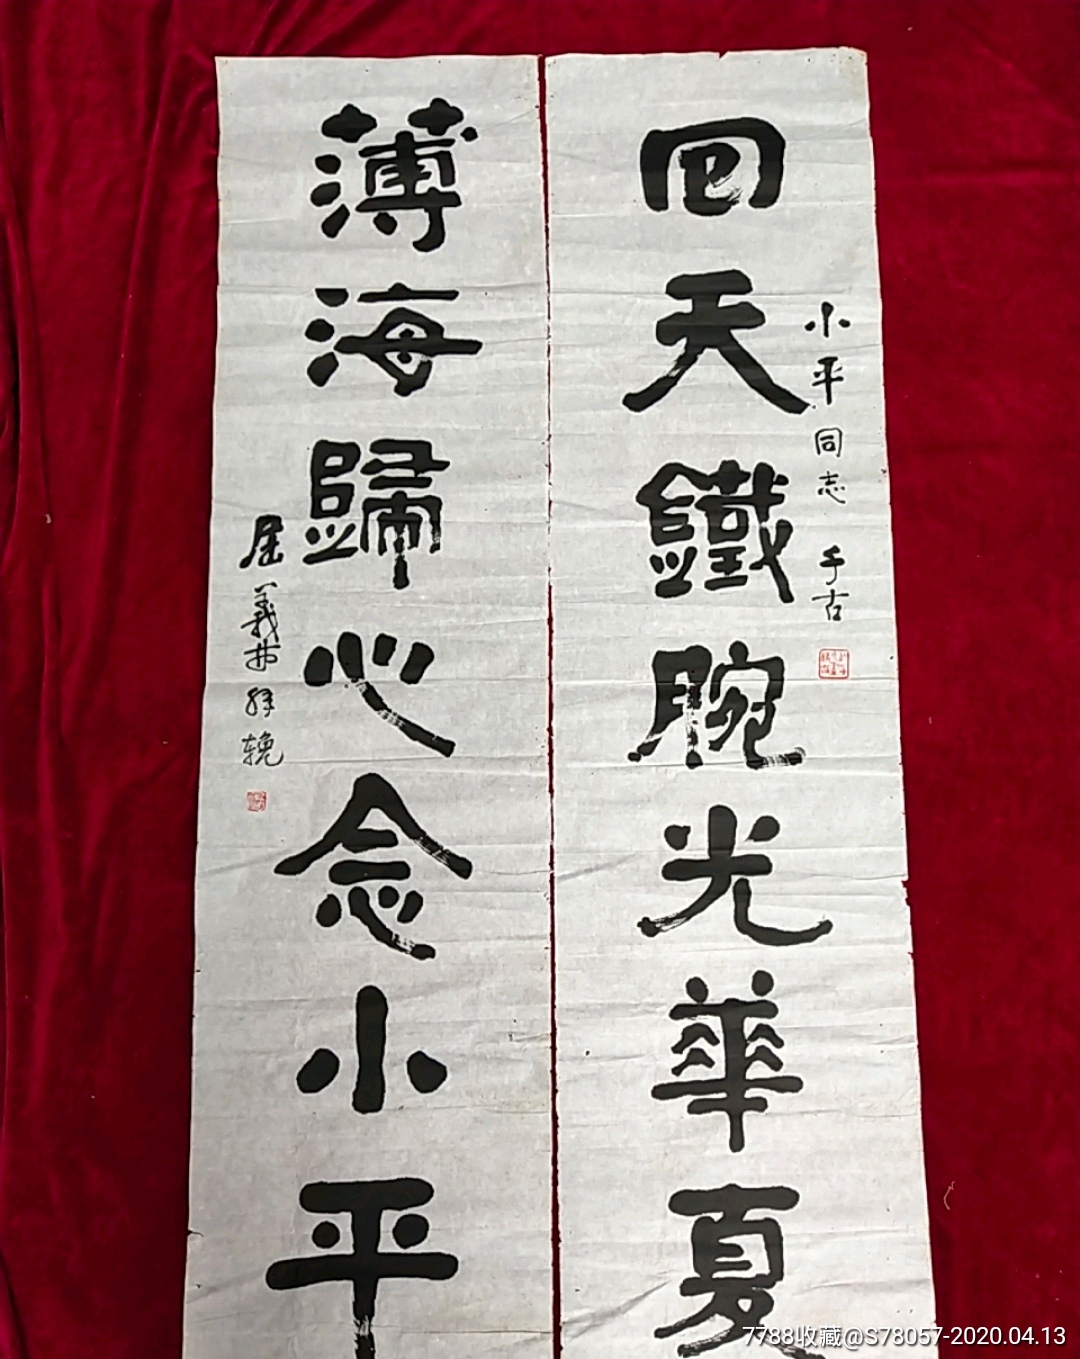 小平同志 千古
回天鐵腕光華夏
薄海歸心念小平
屈義林拜輓
7788收藏@S78057-2020.04.13